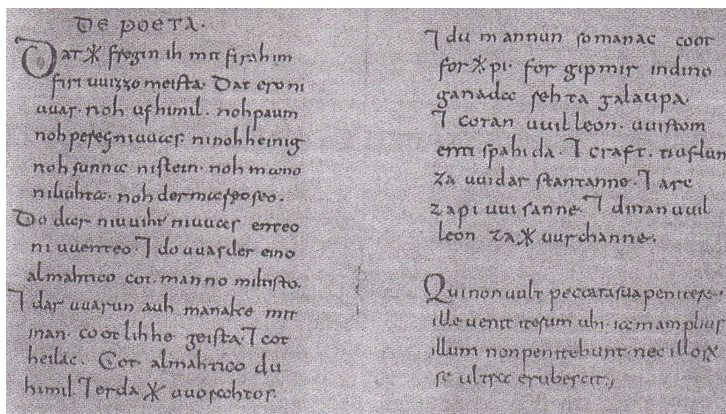 DE POETA·
Dat ✳ fregin ih mit firahim
firi uuizzo meista· Dat ero ni
uuas· noh ufhimil· noh paum
noh peregniuuas· ninohheinig
noh sunna nistein· noh mano
niliuhta· noh dermareoseo·
Do dar niuuiht niuuas enteo
ni uuenteo· ⁊ do uuas der eino
almahtico cot· manno miltisto·
⁊ dar uuarun auh manake mit
inan· cootlihhe geista· ⁊ cot
heilac· Cot almahtico du
himil ⁊ erda ✳ uuorahtos·
⁊ du mannun somanac coot
for✳pi· for gipmir indino
ganada rehta galaupa·
⁊ cotan uuilleon· uuistom
enti spahida· ⁊ craft· tiuflun
za uuidar stantanne· ⁊ arc
zapi uuisanne· ⁊ dinan uuil
leon za ✳ uurchanne·
Qui non uult peccata sua penitere·
ille uenit iterum ubi· iam amplius
illum non penitebunt· nec illorum
se ultra erubescit;